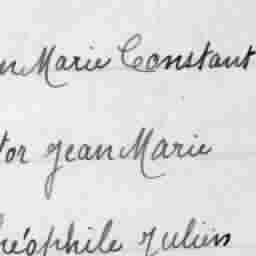 n Marie Constant
tor Jean Marie
héophile Julien